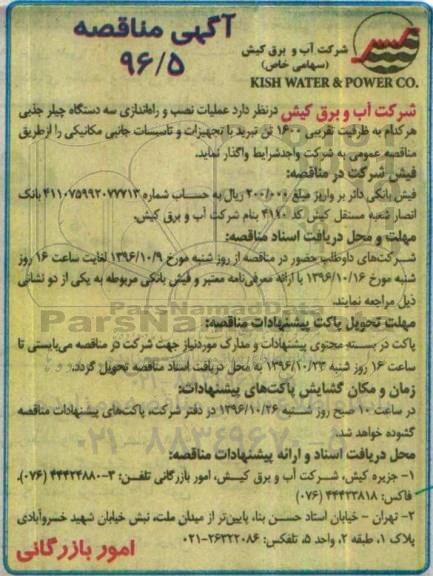 آگهی مناقصه
۹۶/۵
شرکت آب و برق کیش
(سهامی خاص)
KISH WATER & POWER CO.
شرکت آب و برق کیش درنظر دارد عملیات نصب و راه‌اندازی سه دستگاه چیلر جذبی
هرکدام به ظرفیت تقریبی ۱۶۰۰ تن تبرید با تجهیزات و تاسیسات جانبی مکانیکی را ازطریق
مناقصه عمومی به شرکت واجدشرایط واگذار نماید.
فیش شرکت در مناقصه:
فیش بانکی دائر بر واریز مبلغ ۲۰۰/۰۰۰ ریال به حساب شماره ۴۱۱۰۷۵۹۹۲۰۷۷۷۱۳ بانک
انصار شعبه مستقل کیش کد ۴۱۱۰ بنام شرکت آب و برق کیش.
مهلت و محل دریافت اسناد مناقصه:
شرکت‌های داوطلب حضور در مناقصه از روز شنبه مورخ ۱۳۹۶/۱۰/۹ لغایت ساعت ۱۶ روز
شنبه مورخ ۱۳۹۶/۱۰/۱۶ با ارائه معرفی‌نامه معتبر و فیش بانکی مربوطه به یکی از دو نشانی
ذیل مراجعه نمایند.
مهلت تحویل پاکت پیشنهادات مناقصه:
پاکت در بسته محتوی پیشنهادات و مدارک موردنیاز جهت شرکت در مناقصه می‌بایستی تا
ساعت ۱۶ روز شنبه ۱۳۹۶/۱۰/۲۳ به محل دریافت اسناد مناقصه تحویل گردد.
زمان و مکان گشایش پاکت‌های پیشنهادات:
در ساعت ۱۰ صبح روز شنبه ۱۳۹۶/۱۰/۲۶ در دفتر شرکت، پاکت‌های پیشنهادات مناقصه
گشوده خواهد شد.
محل دریافت اسناد و ارائه پیشنهادات مناقصه:
۱- جزیره کیش، شرکت آب و برق کیش، امور بازرگانی تلفن: ۳-۴۴۴۲۴۸۸۰ (۰۷۶)،
فاکس: ۴۴۴۲۳۸۱۸ (۰۷۶)
۲- تهران - خیابان استاد حسن بنا، پایین‌تر از میدان ملت، نبش خیابان شهید خسروآبادی
پلاک ۱، طبقه ۲، واحد ۵، تلفکس: ۲۶۳۲۲۰۸۶-۰۲۱
امور بازرگانی
ParsNamadData